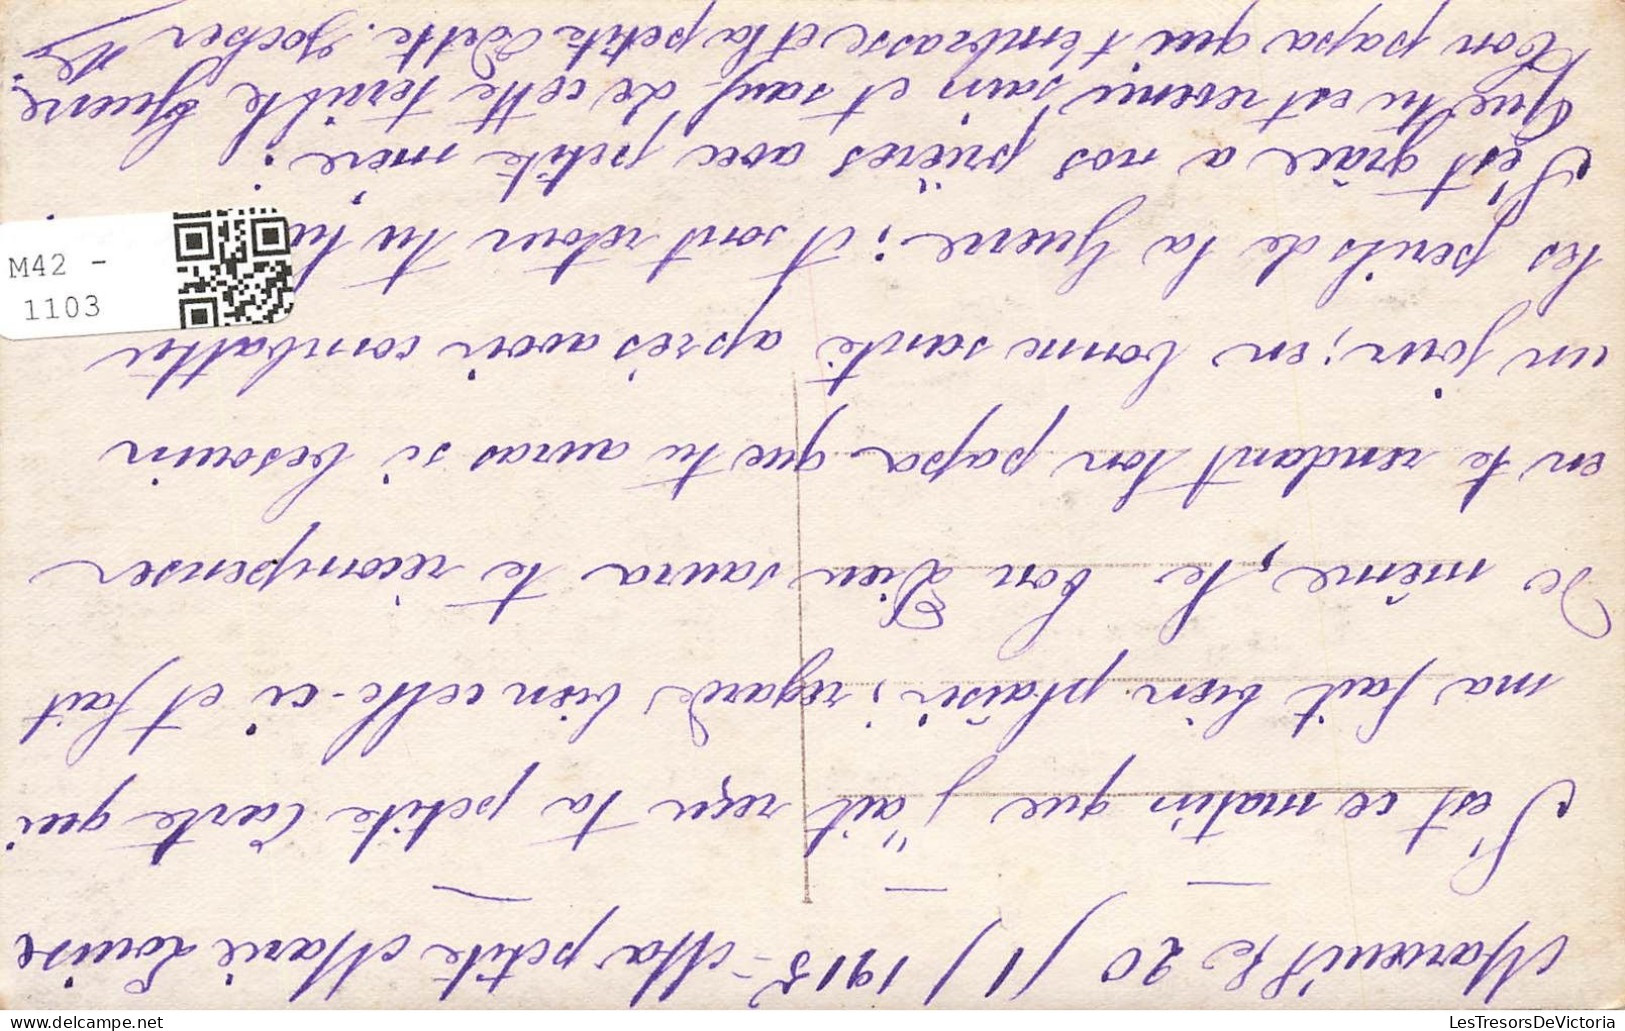 Marœuil le 20 / 1 / 1915 - Ma petite Marie Louise
S'est ce matin que j'ait reçu ta petite Carte qui
ma fait bien plaisir ; regarde bien celle-ci et fait
de même, le bon Dieu saura te récompenser
en te rendant ton papa que tu auras si besouin
un jour ; en bonne santé après avoir combattu
les perils de la Guerre ; et sont retour tu lui
S'est grâce a nos prières avec petite mère :
Que tu est revenu sain et sauf de cette terrible Guerre.
Ton papa qui t'embrasse et la petite Odette.
M42 -
1103
LesTresorsDeVictoria